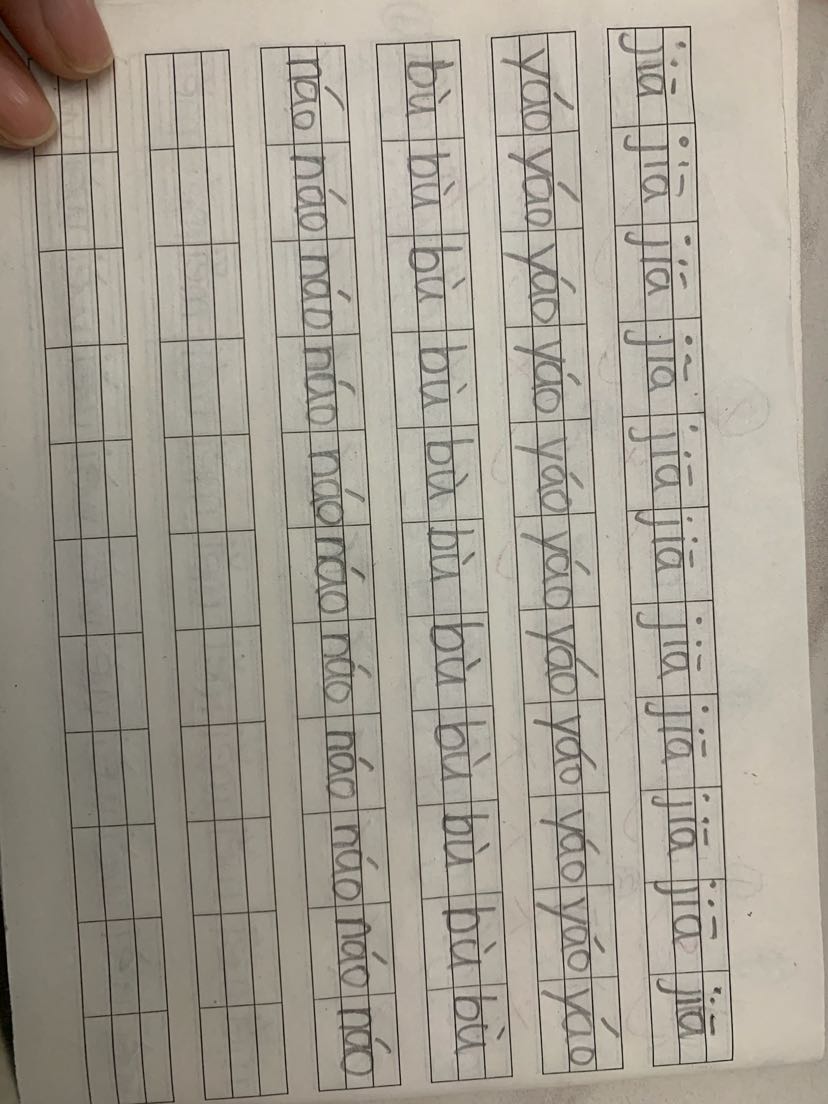 jiā jiā jiā jiā jiā jiā jiā jiā jiā jiā jiā
yáo yáo yáo yáo yáo yáo yáo yáo yáo yáo yáo
bù bù bù bù bù bù bù bù bù bù bù
náo náo náo náo náo náo náo náo náo náo náo